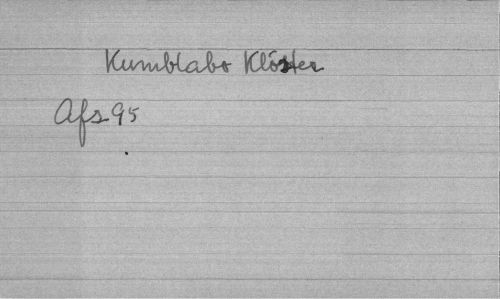 Kumblabo Klöster
Afs 95